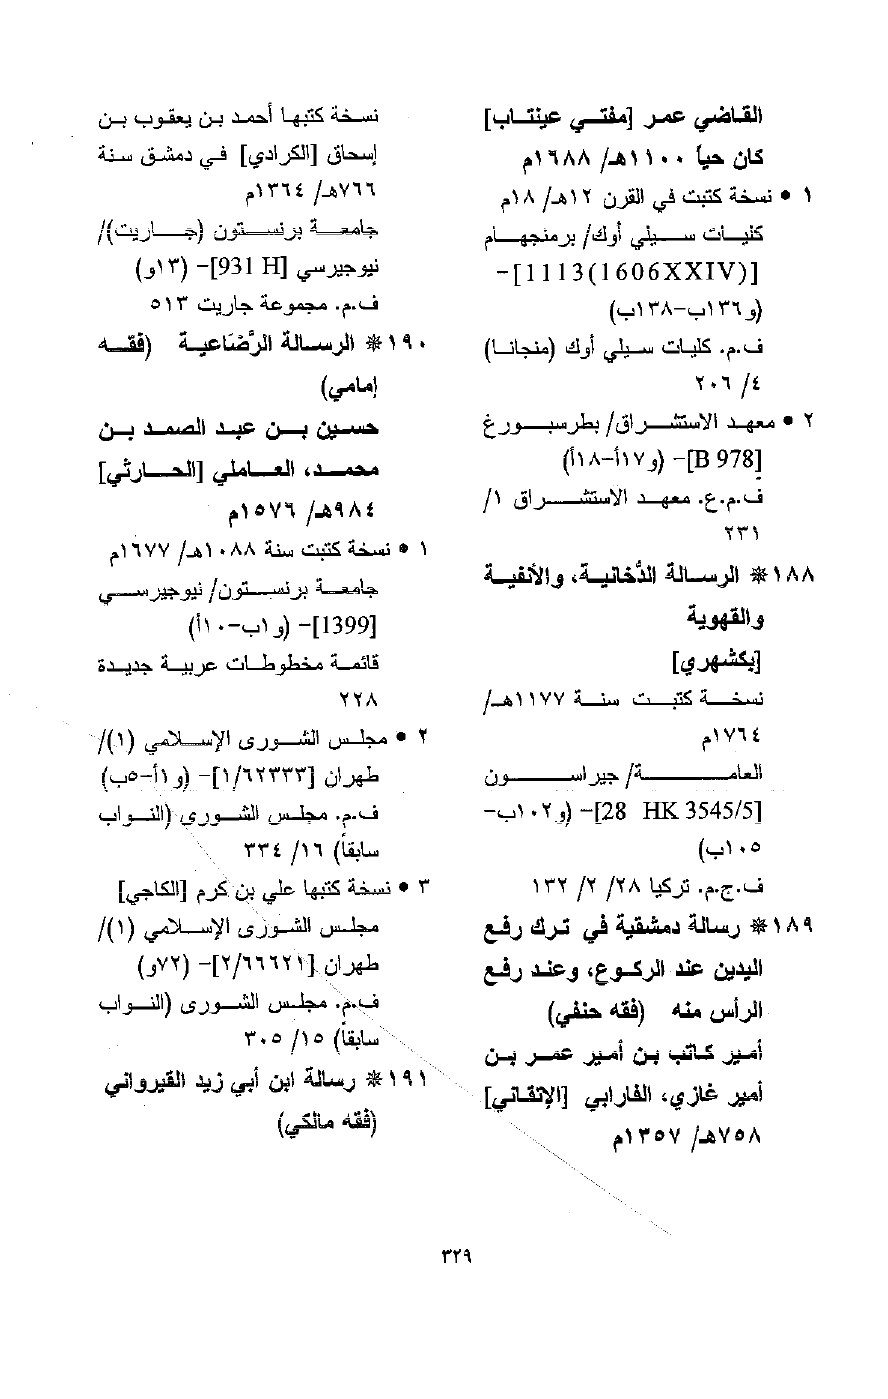 القاضي عمر [مفتي عينتاب]
كان حياً ١١٠٠هـ/ ١٦٨٨م
١ • نسخة كتبت في القرن ١٢هـ/ ١٨م
كليات سيلي أوك/ برمنجهام
[1113(1606XXIV)]-
(و١٣٦ب-١٣٨ب)
ف.م. كليات سيلي أوك (منجانا)
٤/ ٢٠٦
٢ • معهد الاستشراق/ بطرسبورغ
[B 978]- (و١٧أ-١٨أ)
ف.م.ع. معهد الاستشراق ١/
٢٣١
١٨٨ * الرسالة الدُّخانية، والأنفية
والقهوية
[بكشهري]
نسخة كتبت سنة ١١٧٧هـ/
١٧٦٤م
العامة/ جيراسون
[28 HK 3545/5]- (و١٠٢ب-
١٠٥ب)
ف.ج.م. تركيا ٢٨/ ٢/ ١٣٢
١٨٩ * رسالة دمشقية في ترك رفع
اليدين عند الركوع، وعند رفع
الرأس منه (فقه حنفي)
أمير كاتب بن أمير عمر بن
أمير غازي، الفارابي [الإتقاني]
٧٥٨هـ/ ١٣٥٧م
نسخة كتبها أحمد بن يعقوب بن
إسحاق [الكرادي] في دمشق سنة
٧٦٦هـ/ ١٣٦٤م
جامعة برنستون (جاريت)/
نيوجيرسي [931 H]- (١٣و)
ف.م. مجموعة جاريت ٥١٣
١٩٠ * الرسالة الرَّضَاعية (فقه
إمامي)
حسين بن عبد الصمد بن
محمد، العاملي [الحارثي]
٩٨٤هـ/ ١٥٧٦م
١ • نسخة كتبت سنة ١٠٨٨هـ/ ١٦٧٧م
جامعة برنستون/ نيوجيرسي
[1399]- (و١ب-١٠أ)
قائمة مخطوطات عربية جديدة
٢٢٨
٢ • مجلس الشورى الإسلامي (١)/
طهران [١/٦٢٣٣٣]- (و١أ-٥ب)
ف.م. مجلس الشورى (النواب
سابقاً) ١٦/ ٣٣٤
٣ • نسخة كتبها علي بن كرم [الكاجي]
مجلس الشورى الإسلامي (١)/
طهران [٢/٦٦٦٢١]- (٧٢و)
ف.م. مجلس الشورى (النواب
سابقاً) ١٥/ ٣٠٥
١٩١ * رسالة ابن أبي زيد القيرواني
(فقه مالكي)
٣٢٩